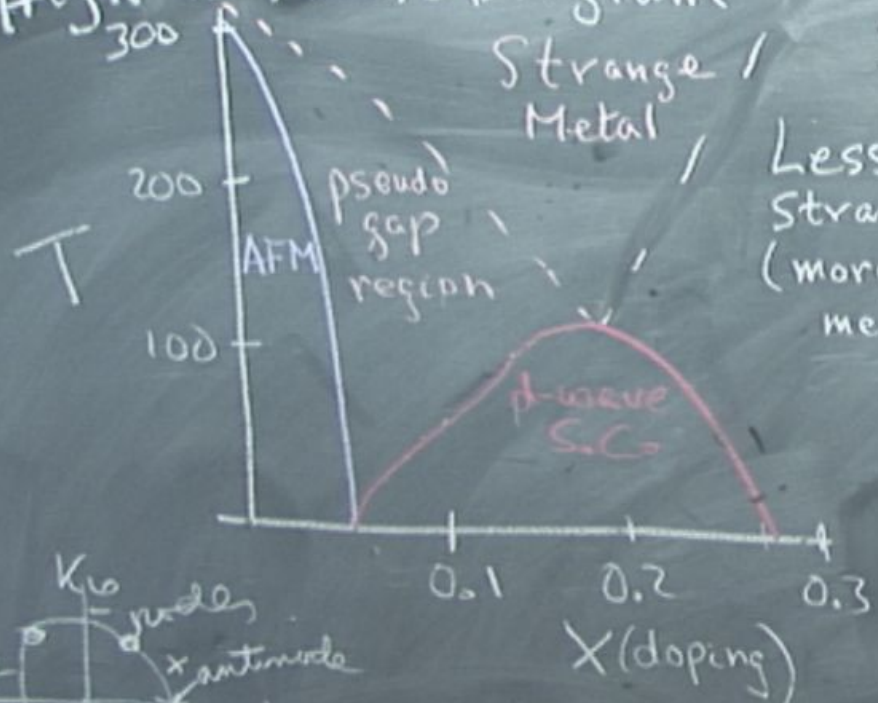 300
Strange
Metal
Less
Stra
(mor
me
200
pseudo
gap
region
T
AFM
100
d-wave
S.C.
0.1
0.2
0.3
X (doping)
nodes
x antinode